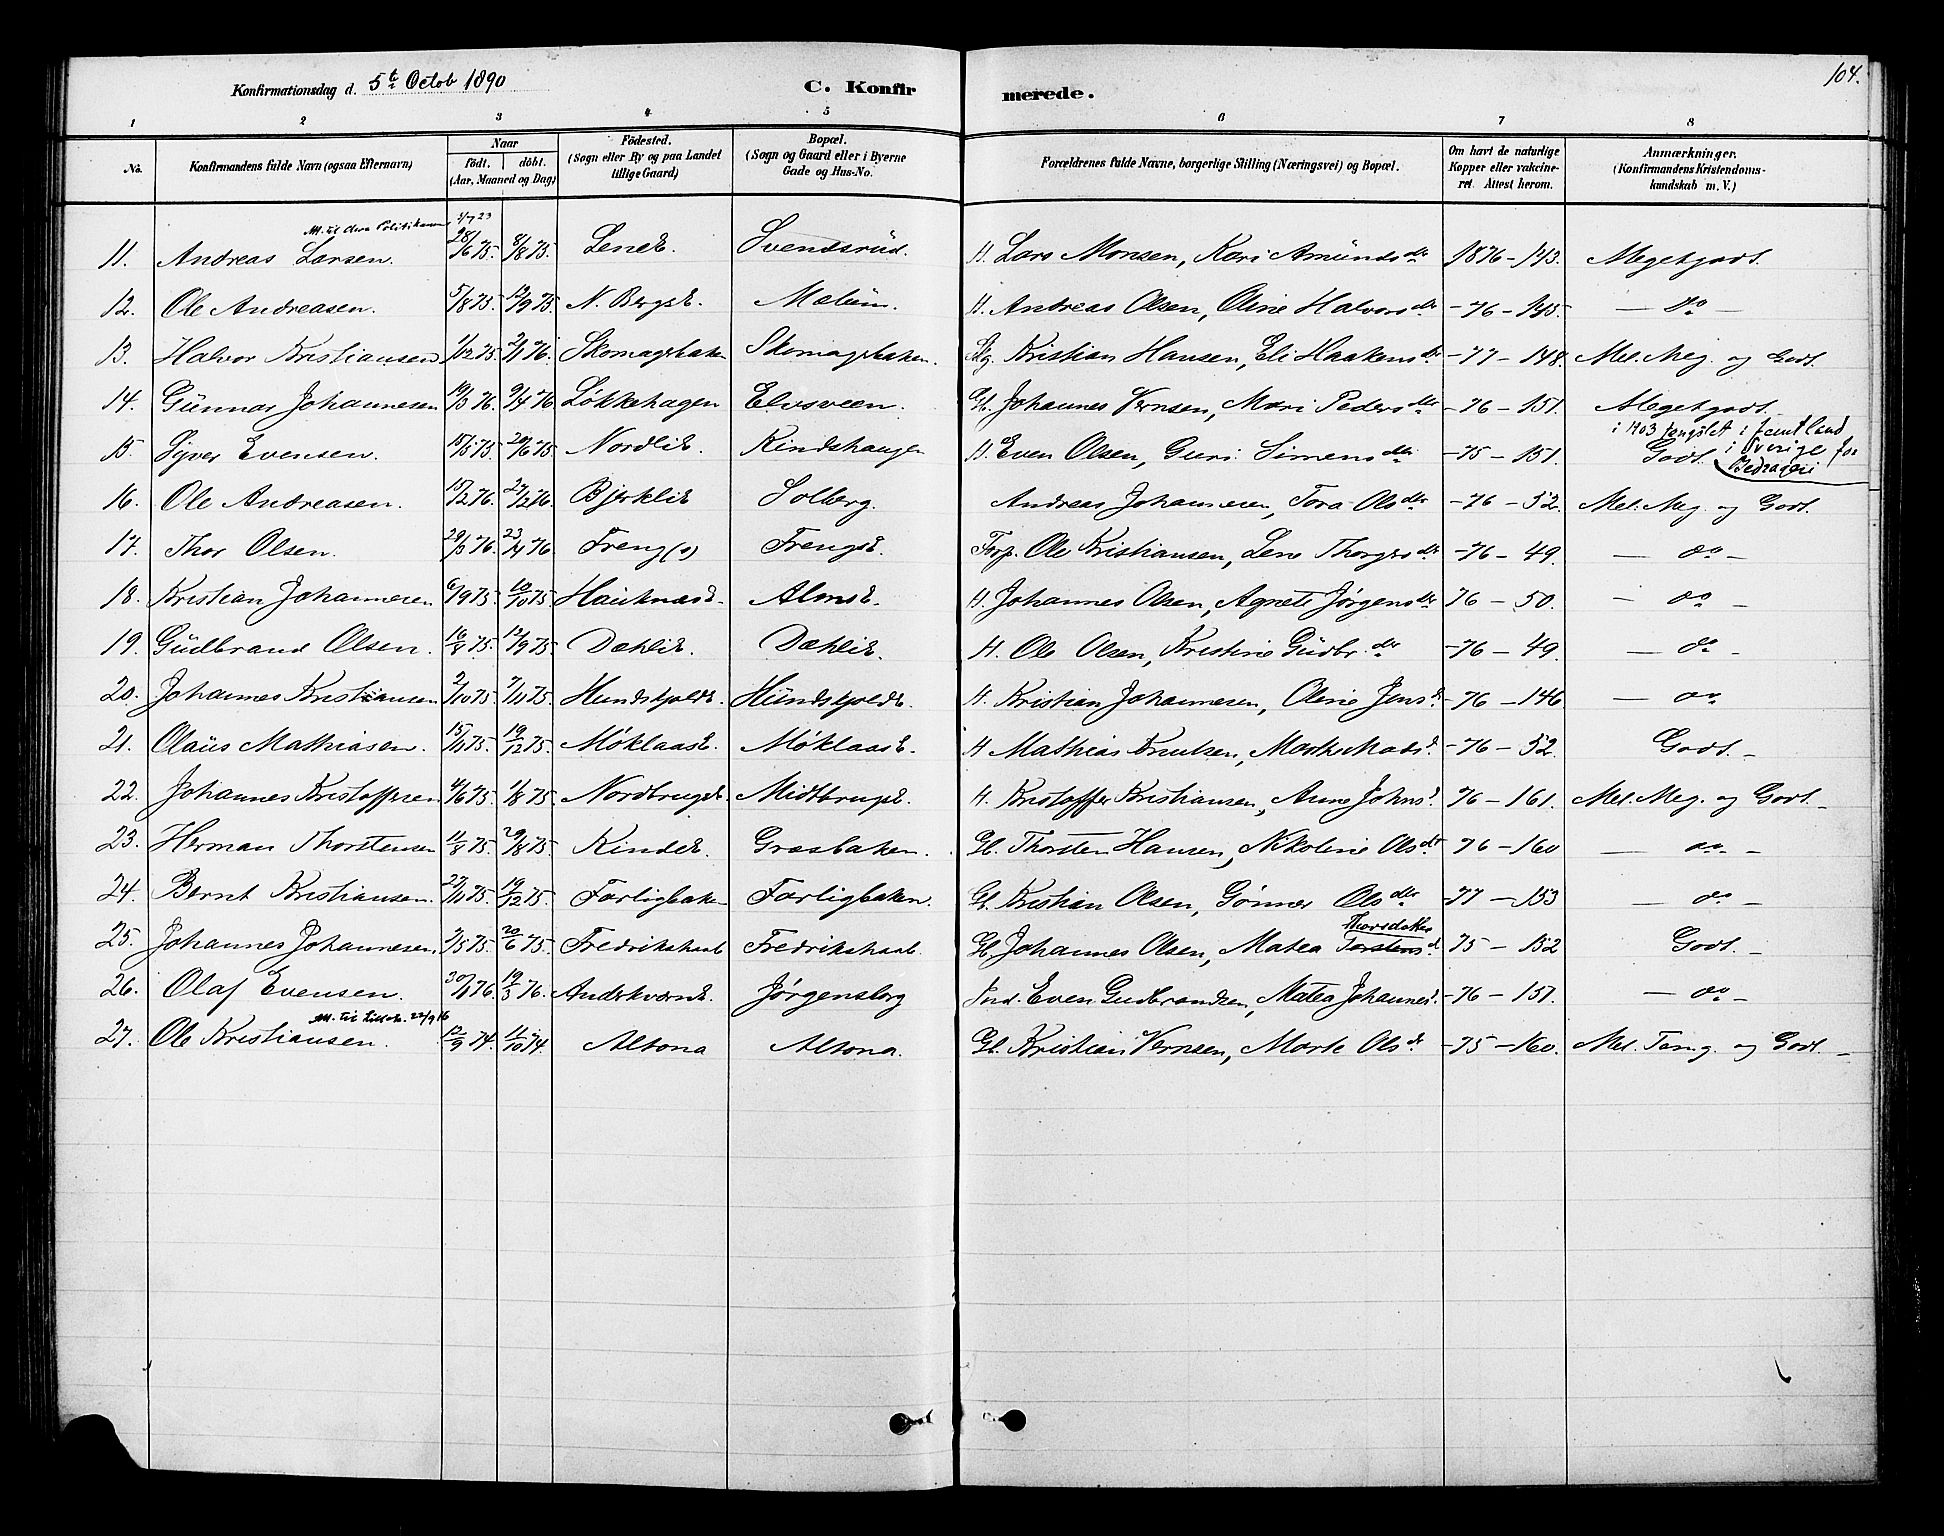 Konfirmationsdag d. 5te Octob 1890 C. Konfirmerede. 104.
1 2 3 4 5 6 7 8
No. Konfirmandens fulde Navn (ogsaa Efternavn) Naar födt. döbt. (Aar, Maaned og Dag) Födested. (Sogn eller By og paa Landet tillige Gaard) Bopæl. (Sogn og Gaard eller i Byerne Gade og Hus-No. Forældrenes fulde Navne, borgerlige Stilling (Næringsvei) og Bopæl. Om havt de naturlige Kopper eller vakcineret. Attest herom. Anmærkninger. (Konfirmandens Kristendomskundskab m. V.)
Att. til 3/7 23
11. Andreas Larsen. 28/6 75. 8/8 75. Lene E. Svendsrud. H. Lars Monsen, Kari Amundsdr 1876-143. Megetgodt.
12. Ole Andreasen. 5/8 75. 12/9 75. N. Bergs E. Mælum. H. Andreas Olsen, Oline Halvorsdr -76-145. — do —
13. Halvor Kristiansen 1/12 75. 2/1 76. Skomagerbaken Skomagerbaken. Kristian Hansen, Eli Haakensdr -77-148. Mel. Meg. og Godt.
14. Gunnar Johannesen 19/3 76. 9/4 76 Løkkehagen Elvsveen. Gl. Johannes Vernsen, Mari Pedersdtr -76-151. Megetgodt.
i 1903 fængslet i Jemtland i Sverige for Bedrageri
15. Syver Evensen. 15/5 75. 20/6 75 Nordli E. Kindshaugen H. Even Olsen, Guri Simensdtr -75-151. Godt.
16. Ole Andreasen. 15/2 76. 27/2 76. Bjerkli E Solberg. Andreas Johannesen, Tora Olsdtr -76-52. Mel. Meg. og Godt.
17. Thor Olsen. 29/3 76. 23/4 76. Freng (s) Frengs E. Forp. Ole Kristiansen, Lene Thorgersdtr -76-49. — do —
18. Kristian Johannesen 6/9 75. 10/10 75 Hauknes E. Alms E. H. Johannes Olsen, Agnete Jørgensdtr 76-50. — do —
19. Gudbrand Olsen. 16/8 75. 12/9 75. Dæhli E. Dæhli E. H. Ole Olsen, Kristine Gudbr.dtr -76-49. — do —
20. Johannes Kristiansen 2/10 75. 7/10 75. Hundskjold E. Hundskjold E. H. Kristian Johannesen, Oline Jensd. -76-146 — do
21. Olaus Mathiasen. 15/11 75. 19/12 75. Møklaas E. Møklaas E. H Mathias Knutsen, Marthe Madsd. -76-52. Godt. —
22. Johannes Kristoffersen 4/6 75. 1/8 75. Nordbrugs E. Midtbrugs E. H. Kristoffer Kristiansen, Anne Johnsd. 76-161. Mel. Meg. og Godt. —
23. Herman Thorstensen 11/8 75. 29/8 75. Kind E. Græsbaken. Gl. Thorsten Hansen, Nikoline Olsdr 76-160 — do —
24. Bernt Kristiansen. 27/11 75. 19/12 75. Farligbaken Farligbaken. Gl. Kristian Olsen, Gønner Olsdtr -77-153 — do —
Thorsdatter
25. Johannes Johannesen. 2/5 75. 20/6 75. Fredrikshaab Fredrikshaab. Gl. Johannes Olsen, Matea Torstensd. 75-152 Godt. —
26. Olaf Evensen. 30/1 76. 19/3 76. Anderkværn E. Jørgensborg Ind. Even Gudbrandsen, Matea Johannesd. -76-151. — do —
Att. til Lilleh. 22/9 16
27. Ole Kristiansen. 12/9 74. 11/10 74. Altona Altona. Gl. Kristian Vernsen, Marte Olsdr -75-160. Mel. Tem.g. og Godt. —